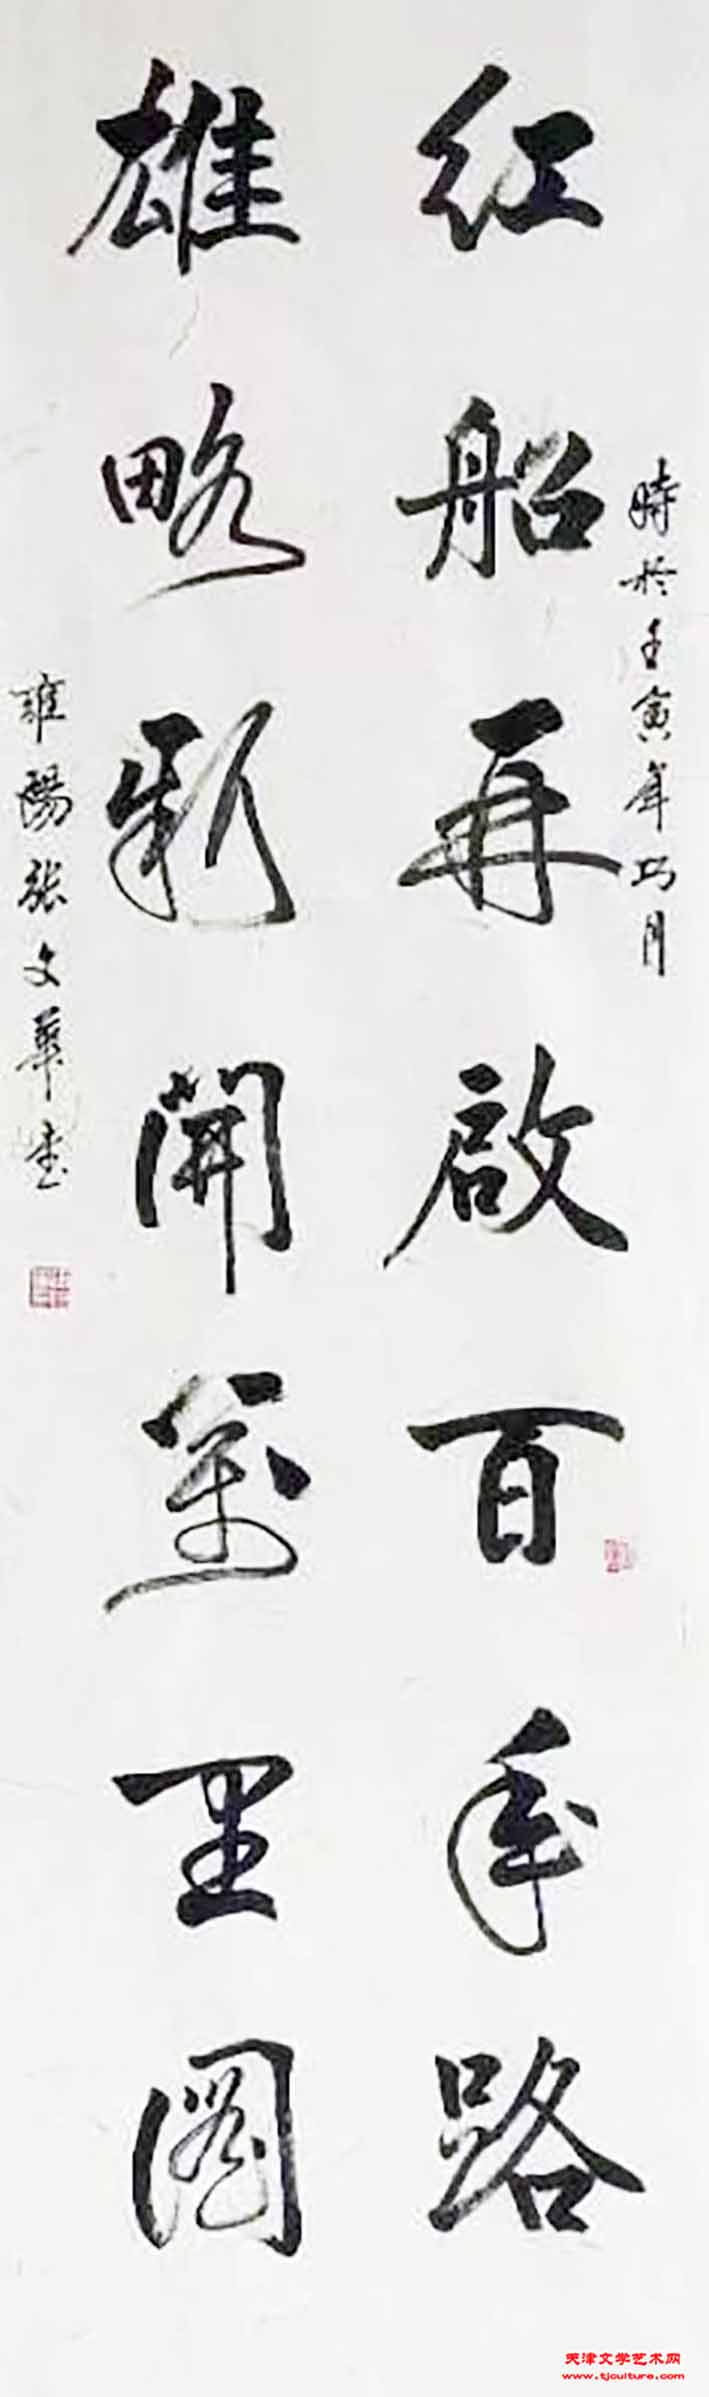 時於壬寅年巧月
红船再啟百年路
雄略新開萬里圖
雍陽张文華书
天津文学艺术网
www.tjculture.com